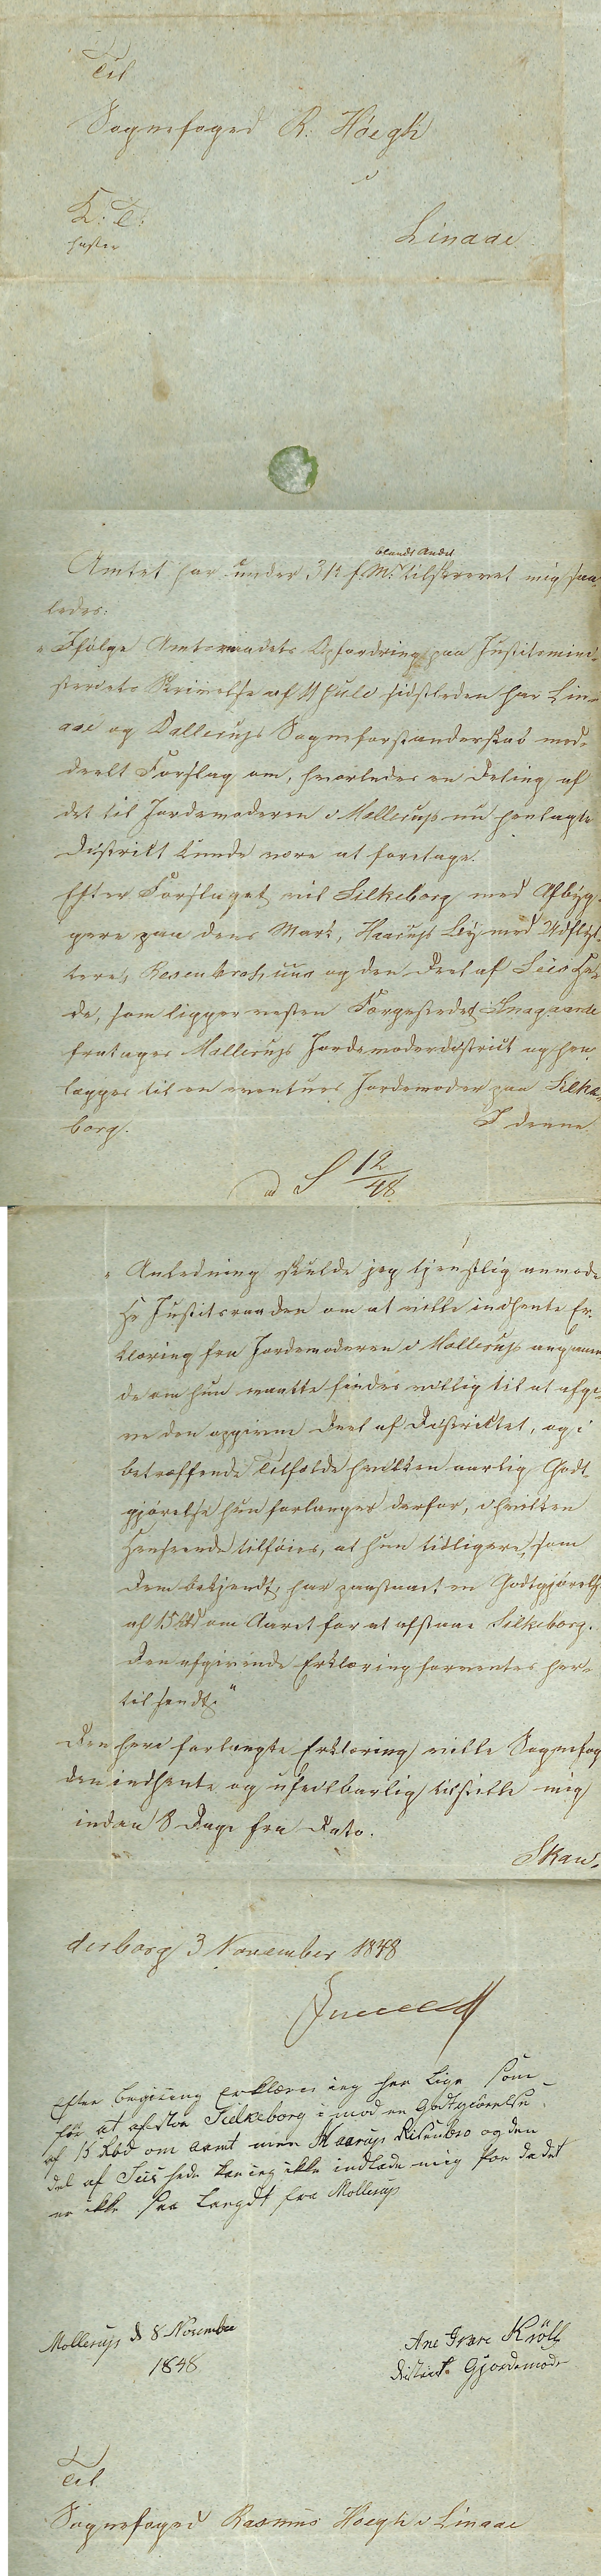 Til
Sognefoged R. Høegh
i
K: T:
haster
Linaae
blandt Andet
Amtet har under 31 f. M. tilskrevet mig saa-
ledes:
"Ifølge Amtsraadets Opfordring paa Justitsmini-
steriets Skrivelse af 11 Juli sidstleden har Lin-
aae og Dallerups Sogneforstanderskab med-
deelt Forslag om, hvorledes en Deling af
det til Jordemoderen i Mollerup nu henlagte
District kunde være at foretage.
Efter Forslaget vil Silkeborg med Afbyg-
gere paa dens Mark, Haarup By med Udflyt-
tere, Resenbro Huus og den Deel af Seiis He-
de, som ligger vesten Færgestedet Snaggaarde
fratages Mollerups Jordemoderdistrict og hen-
lægges til en eventuel Jordemoder paa Silke-
borg.
I denne
ad S 12/48
"Anledning skulde jeg tjenstlig anmode
Hr Justitsraaden om at ville indhente Er-
klæring fra Jordemoderen i Mollerup angaaen-
de om hun maatte findes villig til at afgi-
ve den opgivne Deel af Districtet, og i
betræffende Tilfælde hvilken aarlig Godt-
gjørelse hun forlanger derfor, i hvilken
Henseende tilføies, at hun tidligere, som
Dem bekjendt, har paastaaet en Godtgjørelse
af 15 Rbd om Aaret for at afstaae Silkeborg.
Den afgivende Erklæring forventes her-
til sendt."
Den heri forlangte Erklæring ville Sognefog-
den indhente og ufeilbarlig tilstille mig
inden 8 Dage fra Dato.
Skan-
derborg 3 November 1848
Efter Begiering Erklærer ieg her Lige som
før at afstoe Silkeborg imod en Godtgiörelse
af 15 Rbd om aaret men Haarup Resenbro og den
del af Seiis hede kan ieg ikke indlade mig paa da det
er ikke saa Langdt fra Mollerup
Mollerup d 8 November
1848
Ane Kröll
District Gjordemoder
Til
Sognefoged Rasmus Høegh i Linaae